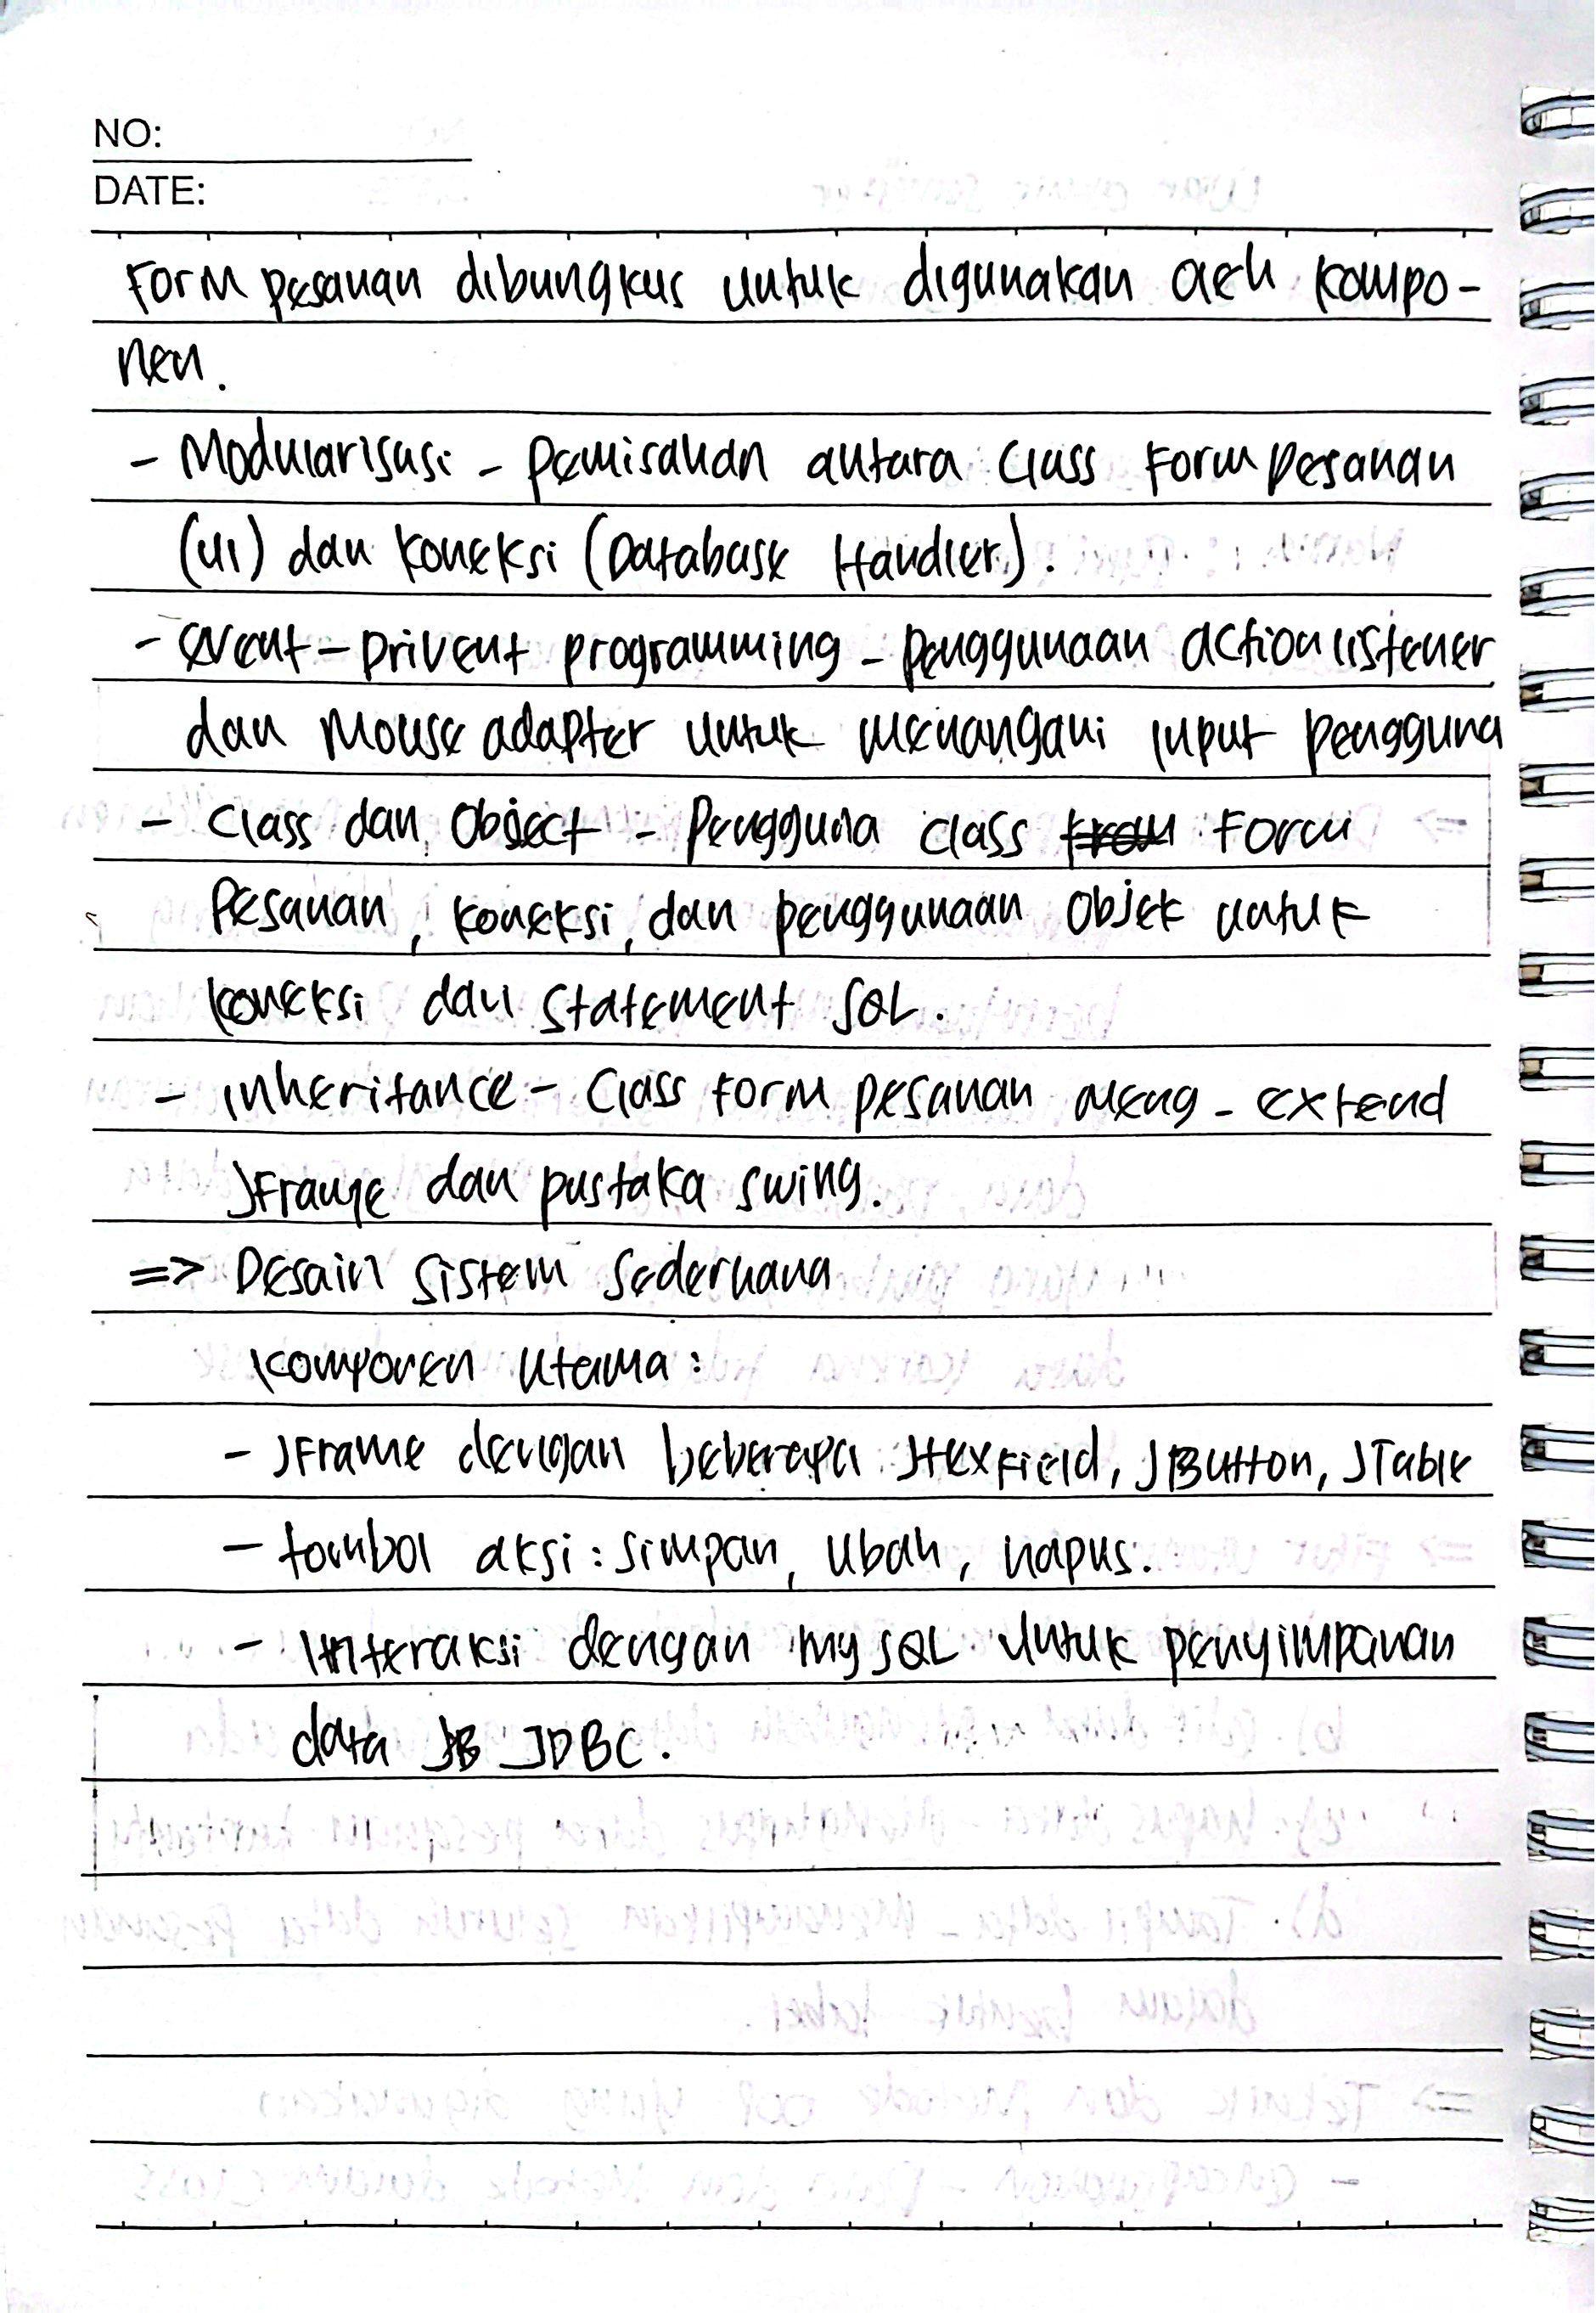 NO:
DATE:
Form pesanan dibungkus untuk digunakan oleh kompo-
nen.
- Modularisasi - pemisahan antara class Form pesanan
(UI) dan koneksi (Database Handler).
- event - Drivent programming - penggunaan action listener
dan Mouse adapter untuk menangani input pengguna
- Class dan Object - Pengguna class Form
Pesanan, koneksi, dan penggunaan objek untuk
koneksi dan statement SQL.
- inheritance - Class Form pesanan meng - extend
JFrame dan pustaka swing.
=> Desain Sistem Sederhana
komponen utama:
- JFrame dengan beberapa JtexField, JButton, JTable
- tombol aksi : simpan, ubah, hapus.
- Interaksi dengan mySQL untuk penyimpanan
data JDBC.